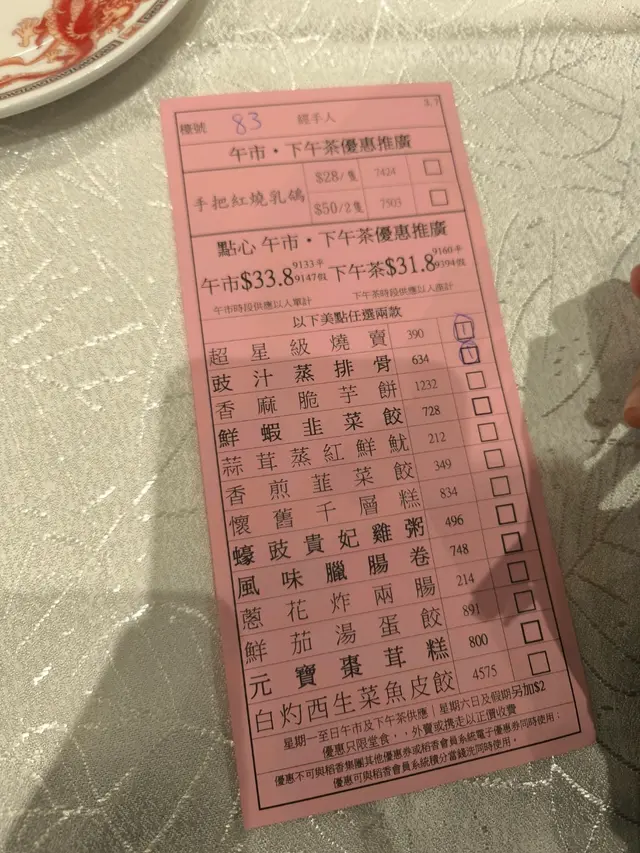 檯號 83 經手人 3.7
午市·下午茶優惠推廣
手把紅燒乳鴿 $28/隻 7424
$50/2隻 7503
點心 午市·下午茶優惠推廣
午市$33.8 9133平 9147假 下午茶$31.8 9160平 9394假
午市時段供應以人單計 下午茶時段供應以人座計
以下美點任選兩款
超星級燒賣 390
豉汁蒸排骨 634
香麻脆芋餅 1232
鮮蝦韭菜餃 728
蒜茸蒸紅鮮魷 212
香煎韮菜餃 349
懷舊千層糕 834
蠔豉貴妃雞粥 496
風味臘腸卷 748
蔥花炸兩腸 214
鮮茄湯蛋餃 891
元寶棗茸糕 800
白灼西生菜魚皮餃 4575
星期一至日午市及下午茶供應|星期六日及假期另加$2
優惠只限堂食,,外賣或携走以正價收費
優惠不可與稻香集團其他優惠券或稻香會員系統電子優惠券同時使用;
優惠可與稻香會員系統積分當錢洗同時使用。